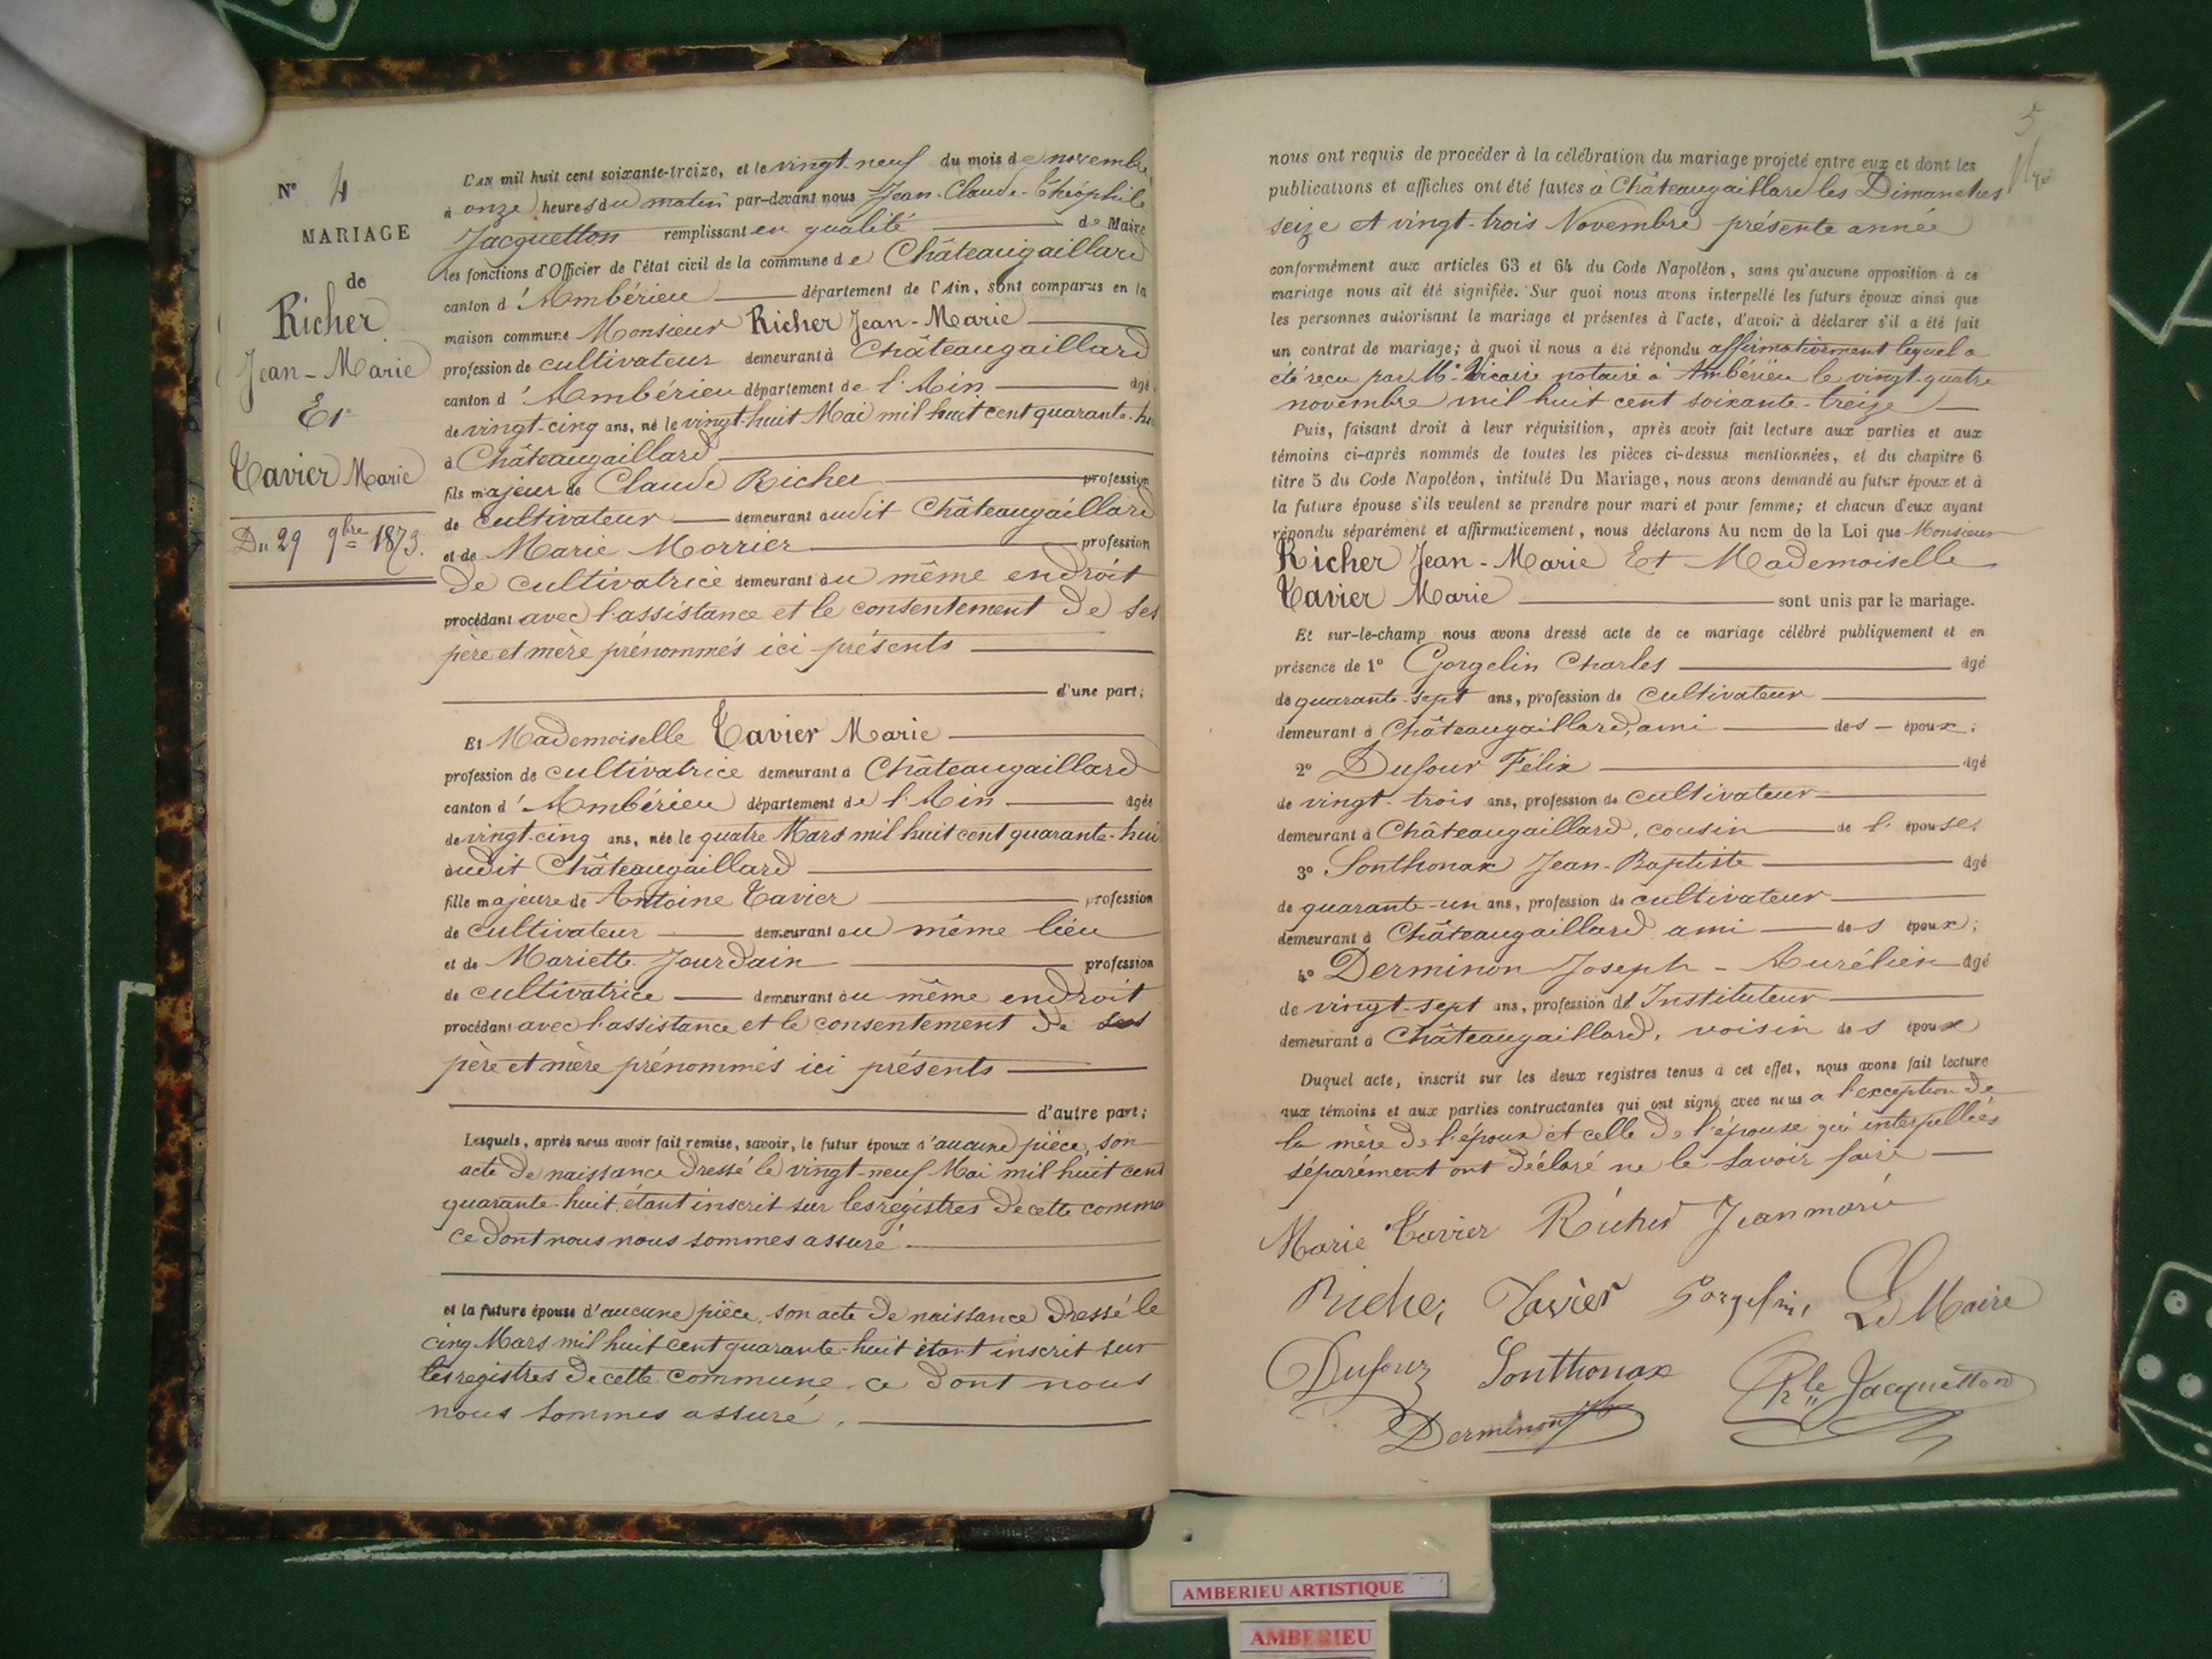 N° 4
MARIAGE
de
Richer
Jean-Marie
Et
Tavier Marie
Du 29 9bre 1873.
L'AN mil huit cent soixante-treize, et le vingt-neuf du mois de novembre
à onze heures du matin par-devant nous Jean-Claude-Théophile
Jacquetton remplissant en qualité de Maire
les fonctions d'Officier de l'état civil de la commune de Châteaugaillard
canton d'Ambérieu département de l'Ain, sont comparus en la
maison commune Monsieur Richer Jean-Marie
profession de cultivateur demeurant à Châteaugaillard
canton d'Ambérieu département de l'Ain âgé
de vingt-cinq ans, né le vingt-huit Mai mil huit cent quarante-hu
à Châteaugaillard
fils majeur de Claude Richer profession
de cultivateur demeurant audit Châteaugaillard
et de Marie Morrier profession
de cultivatrice demeurant au même endroit
procédant avec l'assistance et le consentement de ses
père et mère prénommés ici présents
d'une part;
Et Mademoiselle Tavier Marie
profession de cultivatrice demeurant à Châteaugaillard
canton d'Ambérieu département de l'Ain âgée
de vingt-cinq ans, née le quatre Mars mil huit cent quarante-hui
audit Châteaugaillard
fille majeure de Antoine Tavier profession
de cultivateur demeurant au même lieu
et de Mariette Jourdain profession
de cultivatrice demeurant au même endroit
procédant avec l'assistance et le consentement de ses
père et mère prénommés ici présents
d'autre part;
Lesquels, après nous avoir fait remise, savoir, le futur époux d'aucune pièce, son
acte de naissance dressé le vingt-neuf Mai mil huit cent
quarante-huit étant inscrit sur les registres de cette commu
ce dont nous nous sommes assuré
et la future épouse d'aucune pièce, son acte de naissance dressé le
cinq Mars mil huit cent quarante-huit étant inscrit sur
les registres de cette commune, ce dont nous
nous sommes assuré.
5
nous ont requis de procéder à la célébration du mariage projeté entre eux et dont les
publications et affiches ont été faites à Châteaugaillard les Dimanches
seize et vingt-trois Novembre présente année
conformément aux articles 63 et 64 du Code Napoléon, sans qu'aucune opposition à ce
mariage nous ait été signifiée. Sur quoi nous avons interpellé les futurs époux ainsi que
les personnes autorisant le mariage et présentes à l'acte, d'avoir à déclarer s'il a été fait
un contrat de mariage; à quoi il nous a été répondu affirmativement lequel a
été reçu par Me Vicaire notaire à Ambérieu le vingt-quatre
novembre mil huit cent soixante-treize
Puis, faisant droit à leur réquisition, après avoir fait lecture aux parties et aux
témoins ci-après nommés de toutes les pièces ci-dessus mentionnées, et du chapitre 6
titre 5 du Code Napoléon, intitulé Du Mariage, nous avons demandé au futur époux et à
la future épouse s'ils veulent se prendre pour mari et pour femme; et chacun d'eux ayant
répondu séparément et affirmativement, nous déclarons Au nom de la Loi que Monsieur
Richer Jean-Marie Et Mademoiselle
Tavier Marie sont unis par le mariage.
Et sur-le-champ nous avons dressé acte de ce mariage célébré publiquement et en
présence de 1° Gorgelin Charles âgé
de quarante-sept ans, profession de cultivateur
demeurant à Châteaugaillard, ami des époux;
2° Dufour Félix âgé
de vingt-trois ans, profession de cultivateur
demeurant à Châteaugaillard, cousin de l'épouse;
3° Sonthonax Jean-Baptiste âgé
de quarante-un ans, profession de cultivateur
demeurant à Châteaugaillard ami des époux;
4° Derminon Joseph-Aurélien âgé
de vingt-sept ans, profession d'Instituteur
demeurant à Châteaugaillard, voisin des époux
Duquel acte, inscrit sur les deux registres tenus à cet effet, nous avons fait lecture
aux témoins et aux parties contractantes qui ont signé avec nous à l'exception de
la mère de l'époux et celle de l'épouse qui interpellées
séparément ont déclaré ne le savoir faire
Marie Tavier Richer Jeanmarie
Richer Tavier Gorgelin, Le Maire
Dufour Sonthonax Jacquetton
Derminon
AMBERIEU ARTISTIQUE
AMBERIEU